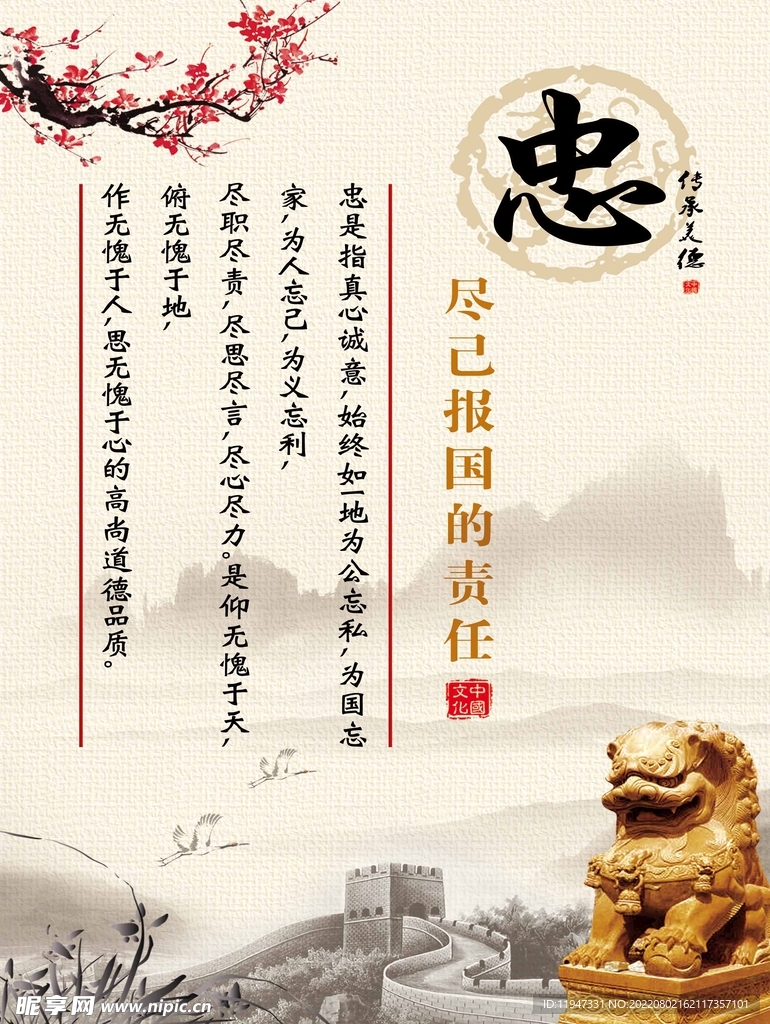 忠
传承美德
尽己报国的责任
中國
文化
忠是指真心诚意,始终如一地为公忘私,为国忘
家,为人忘己,为义忘利,
尽职尽责,尽思尽言,尽心尽力。是仰无愧于天,
俯无愧于地,
作无愧于人,思无愧于心的高尚道德品质。
昵享网 www.nipic.cn
ID:11947331 NO:20220802162117357101